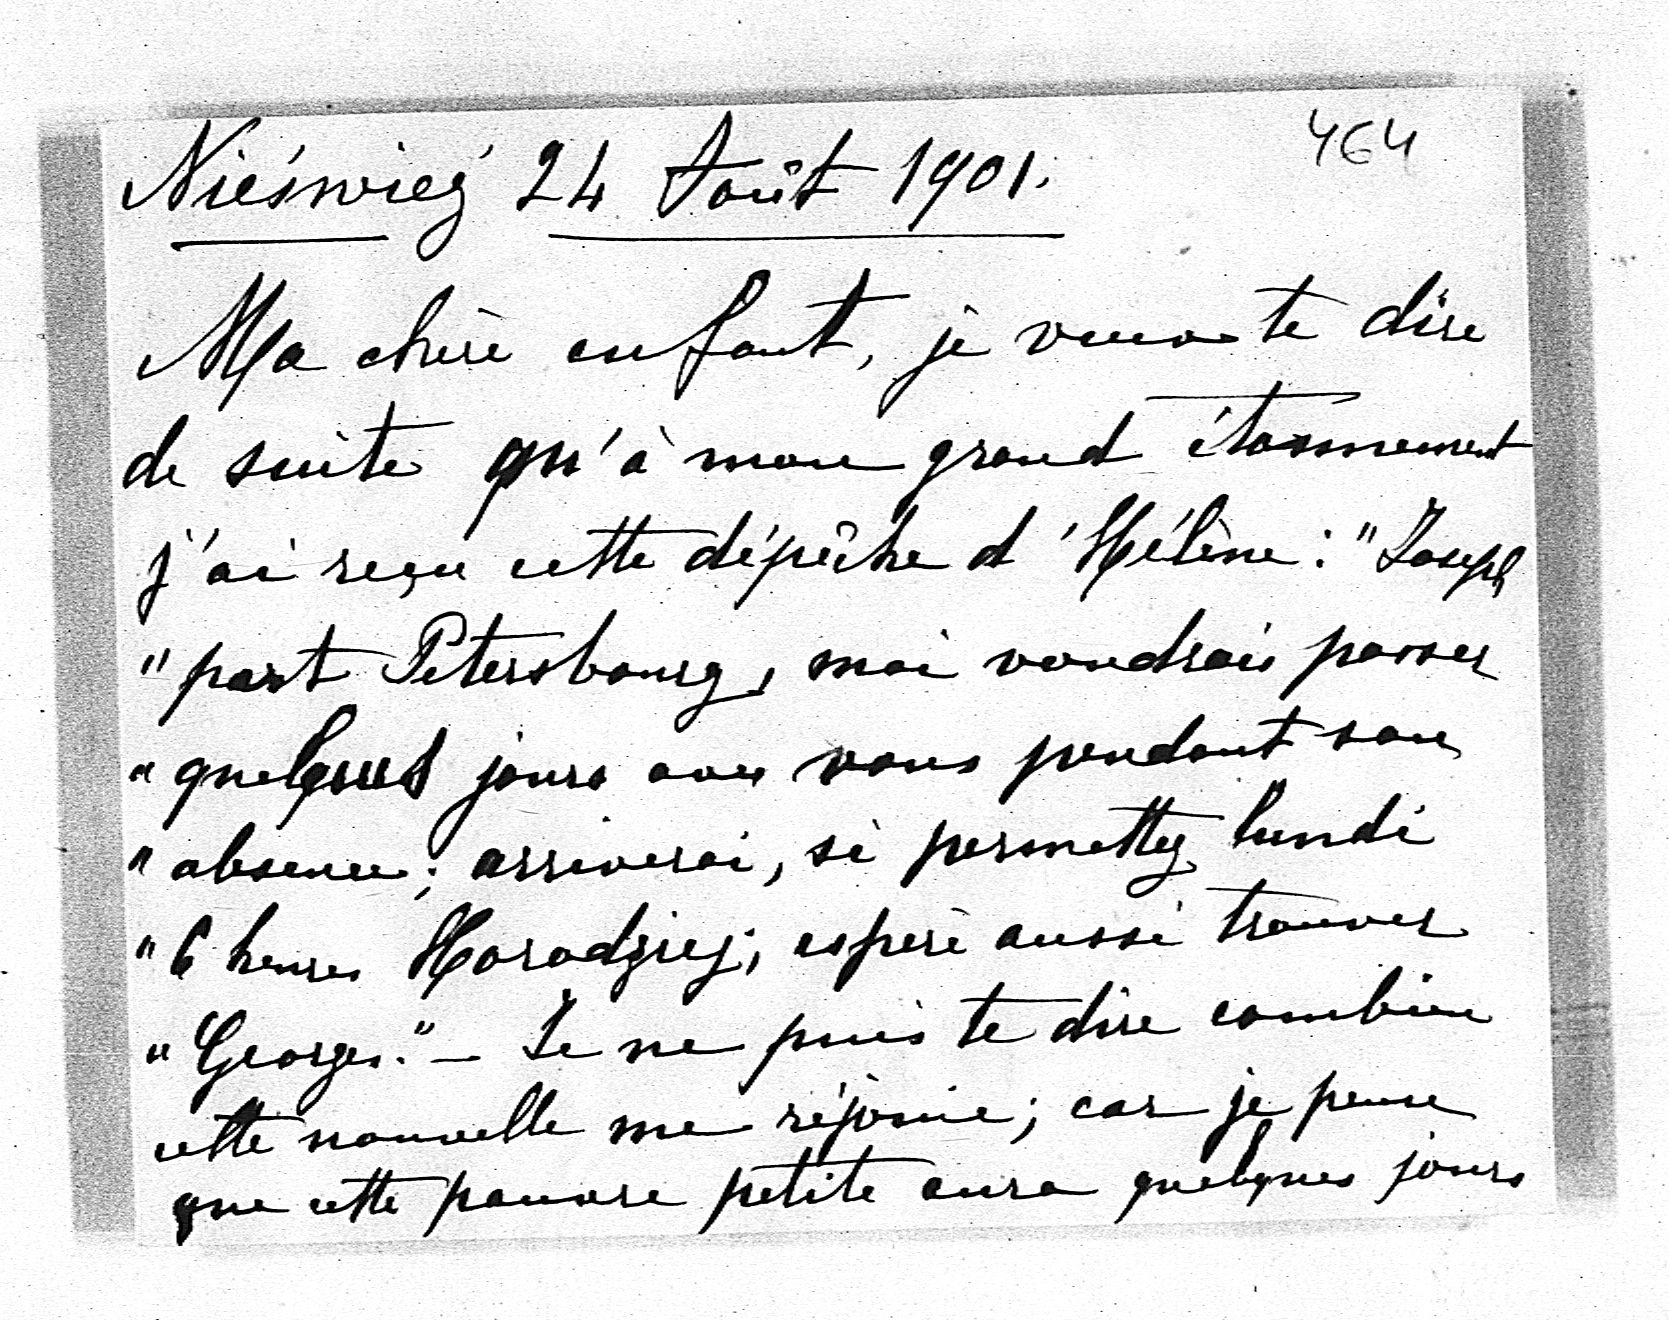 464
Nieśwież 24 Août 1901.
Ma chère enfant, je veux te dire
de suite qu'à mon grand étonnement
j'ai reçu cette dépêche d'Hélène: "Joseph
"part Pétersbourg, moi voudrais passer
"quelques jours avec vous pendant son
"absence; arriverai, si permettez lundi
"6 heures Horodziej; espère aussi trouver
"Georges." — Je ne puis te dire combien
cette nouvelle me réjouie; car je pense
que cette pauvre petite aura quelques jours